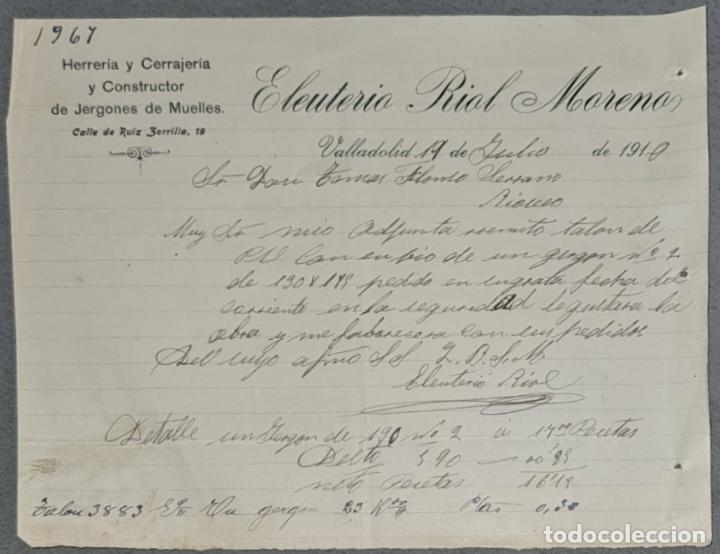 1967
Herrería y Cerrajería
y Constructor
de Jergones de Muelles.
Calle de Ruiz Zorrilla, 19
Eleuterio Riol Moreno
Valladolid 19 de Julio de 1910
Sr Don Tomas Alonso Serrano
Rioseco
Muy Sr mio Adjunto remito talon de
con en bio de un gergon nº 2
de 190 x pedido en su grata fecha del
corriente en la seguridad le gustara la
obra y me faborecera con sus pedidos
Del suyo afmo S S Q. B. S. M.
Eleuterio Riol
Detalle un Gergon de 190 nº 2 a 17 Pesetas
Deto 5 90 00'85
neto Pesetas 16'15
Talon 3883 Un gergon 23 0,30